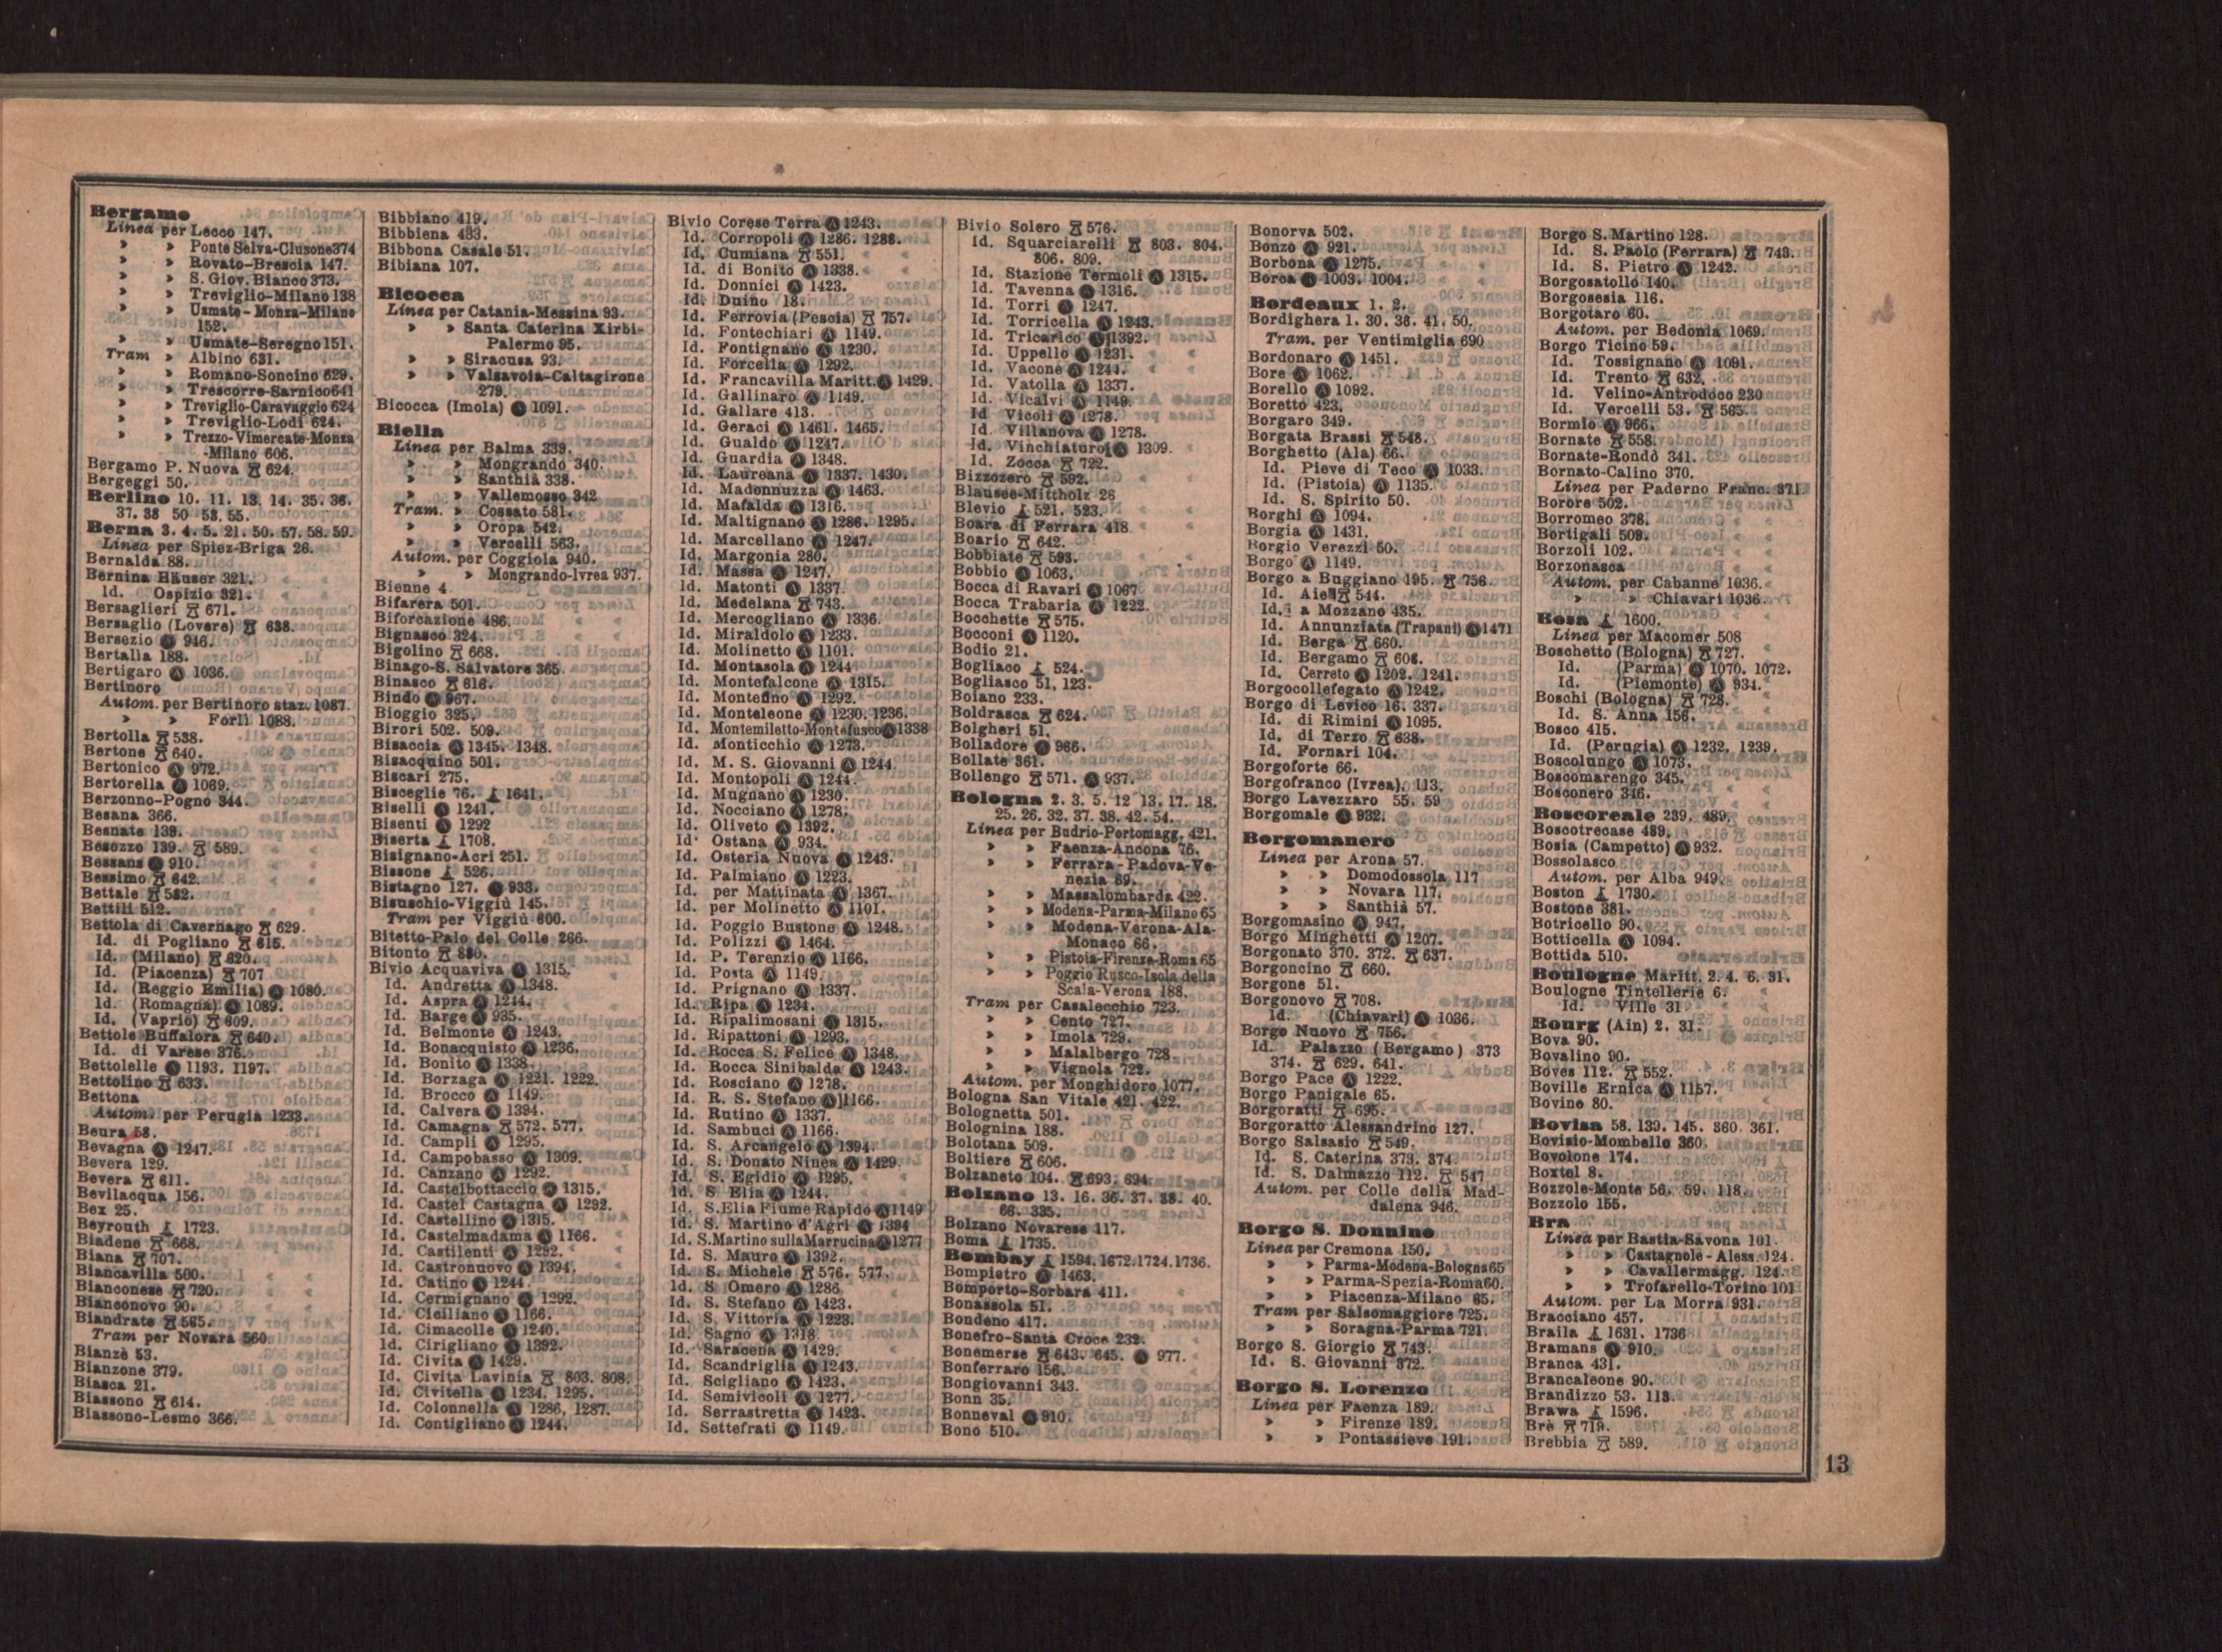 Bergamo
Linea per Lecco 147.
» » Ponte Selva-Clusone 374
» » Rovato-Brescia 147.
» » S. Giov. Bianco 373.
» » Treviglio-Milano 138
» » Usmate-Monza-Milano
152.
» » Usmate-Seregno 151.
Tram » Albino 631.
» » Romano-Soncino 629.
» » Trescorre-Sarnico 641
» » Treviglio-Caravaggio 624
» » Treviglio-Lodi 624.
» » Trezzo-Vimercate-Monza
-Milano 606.
Bergamo P. Nuova 624.
Bergeggi 50.
Berlino 10. 11. 13. 14. 35. 36.
37. 38 50 53. 55.
Berna 3. 4. 5. 21. 50. 57. 58. 59.
Linea per Spiez-Briga 26.
Bernalda 88.
Bernina Häuser 321.
Id. Ospizio 321.
Bersaglieri 671.
Bersaglio (Lovere) 638.
Bersezio Ⓐ 946.
Bertalla 188.
Bertigaro Ⓐ 1036.
Bertinoro
Autom. per Bertinoro staz. 1087.
» » Forlì 1088.
Bertolla 538.
Bertone 640.
Bertonico Ⓐ 972.
Bertorella Ⓐ 1069.
Berzonno-Pogno 344.
Besana 366.
Besnate 139.
Besozzo 139. 589.
Bessans Ⓐ 910.
Bessimo 642.
Bettale 582.
Bettili 512.
Bettola di Cavernago 629.
Id. di Pogliano 615.
Id. (Milano) 620.
Id. (Piacenza) 707
Id. (Reggio Emilia) Ⓐ 1080.
Id. (Romagna) Ⓐ 1089.
Id. (Vaprio) 609.
Bettole Buffalora 640.
Id. di Varese 376.
Bettolelle Ⓐ 1193. 1197.
Bettolino 633.
Bettona
Autom. per Perugia 1233.
Beura 58.
Bevagna Ⓐ 1247.
Bevera 129.
Bevera 611.
Bevilacqua 156.
Bex 25.
Beyrouth 1723.
Biadene 668.
Biana 707.
Biancavilla 500.
Bianconese 720.
Bianconovo 90.
Biandrate 565.
Tram per Novara 560.
Bianzè 53.
Bianzone 379.
Biasca 21.
Biassono 614.
Biassono-Lesmo 366.
Bibbiano 419.
Bibbiena 433.
Bibbona Casale 51.
Bibiana 107.
Bicocca
Linea per Catania-Messina 93.
» » Santa Caterina Xirbi-
Palermo 95.
» » Siracusa 93.
» » Valsavoia-Caltagirone
279.
Bicocca (Imola) Ⓐ 1091.
Biella
Linea per Balma 339.
» » Mongrando 340.
» » Santhià 338.
» » Vallemosso 342
Tram. » Cossato 581.
» » Oropa 542.
» » Vercelli 563.
Autom. per Coggiola 940.
» » Mongrando-Ivrea 937.
Bienne 4
Bifarera 501.
Biforcazione 486.
Bignasco 324.
Bigolino 668.
Binago-S. Salvatore 365.
Binasco 616.
Bindo Ⓐ 967.
Bioggio 325.
Birori 502. 509.
Bisaccia Ⓐ 1345. 1348.
Bisacquino 501.
Biscari 275.
Bisceglie 76. 1641.
Biselli Ⓐ 1241.
Bisenti Ⓐ 1292
Biserta 1708.
Bisignano-Acri 251.
Bissone 526.
Bistagno 127. Ⓐ 933.
Bisuschio-Viggiù 145.
Tram per Viggiù 600.
Bitetto-Palo del Colle 266.
Bitonto 830.
Bivio Acquaviva Ⓐ 1315.
Id. Andretta Ⓐ 1348.
Id. Aspra Ⓐ 1244.
Id. Barge Ⓐ 935.
Id. Belmonte Ⓐ 1243.
Id. Bonacquisto Ⓐ 1236.
Id. Bonito Ⓐ 1338.
Id. Borzaga Ⓐ 1221. 1222.
Id. Brocco Ⓐ 1149.
Id. Calvera Ⓐ 1394.
Id. Camagna 572. 577.
Id. Campli Ⓐ 1295.
Id. Campobasso Ⓐ 1309.
Id. Canzano Ⓐ 1292.
Id. Castelbottaccio Ⓐ 1315.
Id. Castel Castagna Ⓐ 1292.
Id. Castellino Ⓐ 1315.
Id. Castelmadama Ⓐ 1166.
Id. Castilenti Ⓐ 1292.
Id. Castronuovo Ⓐ 1394.
Id. Catino Ⓐ 1244.
Id. Cermignano Ⓐ 1292.
Id. Ciciliano Ⓐ 1166.
Id. Cimacolle Ⓐ 1240.
Id. Cirigliano Ⓐ 1392.
Id. Civita Ⓐ 1429.
Id. Civita Lavinia 803. 808.
Id. Civitella Ⓐ 1234. 1295.
Id. Colonnella Ⓐ 1286, 1287.
Id. Contigliano Ⓐ 1244.
Bivio Corese Terra Ⓐ 1243.
Id. Corropoli Ⓐ 1286. 1288.
Id. Cumiana 551.
Id. di Bonito Ⓐ 1338.
Id. Donnici Ⓐ 1423.
Id. Duino 18.
Id. Ferrovia (Pescia) 757.
Id. Fontechiari Ⓐ 1149.
Id. Fontignano Ⓐ 1230.
Id. Forcella Ⓐ 1292.
Id. Francavilla Maritt. Ⓐ 1429.
Id. Gallinaro Ⓐ 1149.
Id. Gallare 413.
Id. Geraci Ⓐ 1461. 1465.
Id. Gualdo Ⓐ 1247.
Id. Guardia Ⓐ 1348.
Id. Laureana Ⓐ 1337. 1430.
Id. Madonnuzza Ⓐ 1463.
Id. Mafalda Ⓐ 1316.
Id. Maltignano Ⓐ 1286. 1295.
Id. Marcellano Ⓐ 1247.
Id. Margonia 280.
Id. Massa Ⓐ 1247.
Id. Matonti Ⓐ 1337.
Id. Medelana 743.
Id. Mercogliano Ⓐ 1336.
Id. Miraldolo Ⓐ 1233.
Id. Molinetto Ⓐ 1101.
Id. Montasola Ⓐ 1244
Id. Montefalcone Ⓐ 1315.
Id. Montefino Ⓐ 1292.
Id. Monteleone Ⓐ 1230. 1236.
Id. Montemiletto-Montefusco Ⓐ 1338
Id. Monticchio Ⓐ 1273.
Id. M. S. Giovanni Ⓐ 1244.
Id. Montopoli Ⓐ 1244.
Id. Mugnano Ⓐ 1230.
Id. Nocciano Ⓐ 1278.
Id. Oliveto Ⓐ 1392.
Id. Ostana Ⓐ 934.
Id. Osteria Nuova Ⓐ 1243.
Id. Palmiano Ⓐ 1223.
Id. per Mattinata Ⓐ 1367.
Id. per Molinetto Ⓐ 1101.
Id. Poggio Bustone Ⓐ 1248.
Id. Polizzi Ⓐ 1464.
Id. P. Terenzio Ⓐ 1166.
Id. Posta Ⓐ 1149.
Id. Prignano Ⓐ 1337.
Id. Ripa Ⓐ 1234.
Id. Ripalimosani Ⓐ 1315.
Id. Ripattoni Ⓐ 1293.
Id. Rocca S. Felice Ⓐ 1348.
Id. Rocca Sinibalda Ⓐ 1243.
Id. Rosciano Ⓐ 1278.
Id. R. S. Stefano Ⓐ 1166.
Id. Rutino Ⓐ 1337.
Id. Sambuci Ⓐ 1166.
Id. S. Arcangelo Ⓐ 1394.
Id. S. Donato Ninea Ⓐ 1429.
Id. S. Egidio Ⓐ 1295.
Id. S. Elia Ⓐ 1244.
Id. S. Elia Fiume Rapido Ⓐ 1149
Id. S. Martino d'Agri Ⓐ 1394
Id. S. Martino sulla Marrucina Ⓐ 1277
Id. S. Mauro Ⓐ 1392.
Id. S. Michele 576. 577.
Id. S. Omero Ⓐ 1286
Id. S. Stefano Ⓐ 1423.
Id. S. Vittoria Ⓐ 1223.
Id. Sagno Ⓐ 1318
Id. Saracena Ⓐ 1429.
Id. Scandriglia Ⓐ 1243.
Id. Scigliano Ⓐ 1423.
Id. Semivicoli Ⓐ 1277.
Id. Serrastretta Ⓐ 1423.
Id. Settefrati Ⓐ 1149.
Bivio Solero 576.
Id. Squarciarelli 803. 804.
806. 809.
Id. Stazione Termoli Ⓐ 1315.
Id. Tavenna Ⓐ 1316.
Id. Torri Ⓐ 1247.
Id. Torricella Ⓐ 1243.
Id. Tricarico Ⓐ 1392.
Id. Uppello Ⓐ 1231.
Id. Vacone Ⓐ 1244.
Id. Vatolla Ⓐ 1337.
Id. Vicalvi Ⓐ 1149.
Id Vicoli Ⓐ 1278.
Id. Villanova Ⓐ 1278.
Id. Vinchiaturo Ⓐ 1309.
Id. Zocca 722.
Bizzozero 592.
Blausee-Mittholz 26
Blevio 521. 523.
Boara di Ferrara 418
Boario 642.
Bobbiate 593.
Bobbio Ⓐ 1063.
Bocca di Ravari Ⓐ 1067
Bocca Trabaria Ⓐ 1222.
Bocchette 575.
Bocconi Ⓐ 1120.
Bodio 21.
Bogliaco 524.
Bogliasco 51, 123.
Boiano 233.
Boldrasca 624.
Bolgheri 51.
Bolladore Ⓐ 966.
Bollate 361.
Bollengo 571. Ⓐ 937.
Bologna 2. 3. 5. 12 13. 17. 18.
25. 26. 32. 37. 38. 42. 54.
Linea per Budrio-Portomagg. 421.
» » Faenza-Ancona 76.
» » Ferrara-Padova-Ve-
nezia 89.
» » Massalombarda 422.
» » Modena-Parma-Milano 65
» » Modena-Verona-Ala-
Monaco 66.
» » Pistoia-Firenze-Roma 65
» » Poggio Rusco-Isola della
Scala-Verona 188.
Tram per Casalecchio 723.
» » Cento 727.
» » Imola 729.
» » Malalbergo 728
» » Vignola 722.
Autom. per Monghidoro 1077.
Bologna San Vitale 421. 422.
Bolognetta 501.
Bolognina 188.
Bolotana 509.
Boltiere 606.
Bolzaneto 104. 693. 694.
Bolzano 13. 16. 36. 37. 38. 40.
66. 335.
Bolzano Novarese 117.
Boma 1735.
Bombay 1594. 1672. 1724. 1736.
Bompietro Ⓐ 1463.
Bomporto-Sorbara 411.
Bonassola 51.
Bondeno 417.
Bonefro-Santa Croce 232.
Bonemerse 643. 645. Ⓐ 977.
Bonferraro 156.
Bongiovanni 343.
Bonn 35.
Bonneval Ⓐ 910.
Bono 510.
Bonorva 502.
Bonzo Ⓐ 921.
Borbona Ⓐ 1275.
Borca Ⓐ 1003. 1004.
Bordeaux 1. 2.
Bordighera 1. 30. 36. 41. 50.
Tram. per Ventimiglia 690
Bordonaro Ⓐ 1451.
Bore Ⓐ 1062.
Borello Ⓐ 1092.
Boretto 423.
Borgaro 349.
Borgata Brassi 548.
Borghetto (Ala) 66.
Id. Pieve di Teco Ⓐ 1033.
Id. (Pistoia) Ⓐ 1135.
Id. S. Spirito 50.
Borghi Ⓐ 1094.
Borgia Ⓐ 1431.
Borgio Verezzi 50.
Borgo Ⓐ 1149.
Borgo a Buggiano 195. 756.
Id. Aie 544.
Id. a Mozzano 435.
Id. Annunziata (Trapani) Ⓐ 1471
Id. Berga 660.
Id. Bergamo 606.
Id. Cerreto Ⓐ 1202. 1241.
Borgocollefegato Ⓐ 1242.
Borgo di Levico 16. 337.
Id. di Rimini Ⓐ 1095.
Id. di Terzo 638.
Id. Fornari 104.
Borgoforte 66.
Borgofranco (Ivrea). 113.
Borgo Lavezzaro 55. 59
Borgomale Ⓐ 932.
Borgomanero
Linea per Arona 57.
» » Domodossola 117
» » Novara 117.
» » Santhià 57.
Borgomasino Ⓐ 947.
Borgo Minghetti Ⓐ 1207.
Borgonato 370. 372. 637.
Borgoncino 660.
Borgone 51.
Borgonovo 708.
Id. (Chiavari) Ⓐ 1036.
Borgo Nuovo 756.
Id. Palazzo (Bergamo) 373
374. 629. 641.
Borgo Pace Ⓐ 1222.
Borgo Panigale 65.
Borgoratti 695.
Borgoratto Alessandrino 127.
Borgo Salsasio 549.
Id. S. Caterina 373. 374.
Id. S. Dalmazzo 112. 547
Autom. per Colle della Mad-
dalena 946.
Borgo S. Donnino
Linea per Cremona 150.
» » Parma-Modena-Bologna 65
» » Parma-Spezia-Roma 60.
» » Piacenza-Milano 65.
Tram per Salsomaggiore 725.
» » Soragna-Parma 721.
Borgo S. Giorgio 743.
Id. S. Giovanni 372.
Borgo S. Lorenzo
Linea per Faenza 189.
» » Firenze 189.
» » Pontassieve 191.
Borgo S. Martino 128.
Id. S. Paolo (Ferrara) 743.
Id. S. Pietro Ⓐ 1242.
Borgosatollo 140.
Borgosesia 116.
Borgotaro 60.
Autom. per Bedonia 1069.
Borgo Ticino 59.
Id. Tossignano Ⓐ 1091.
Id. Trento 632.
Id. Velino-Antrodoco 230
Id. Vercelli 53. 565.
Bormio Ⓐ 966.
Bornate 558.
Bornate-Rondò 341.
Bornato-Calino 370.
Linea per Paderno Franc. 371.
Borore 502.
Borromeo 378.
Bortigali 509.
Borzoli 102.
Borzonasca
Autom. per Cabanne 1036.
» » Chiavari 1036.
Bosa 1600.
Linea per Macomer 508
Boschetto (Bologna) 727.
Id. (Parma) Ⓐ 1070. 1072.
Id. (Piemonte) Ⓐ 934.
Boschi (Bologna) 728.
Id. S. Anna 156.
Bosco 415.
Id. (Perugia) Ⓐ 1232. 1239.
Boscolungo Ⓐ 1073.
Boscomarengo 345.
Bosconero 346.
Boscoreale 239. 489.
Boscotrecase 489.
Bosia (Campetto) Ⓐ 932.
Bossolasco
Autom. per Alba 949.
Boston 1730.
Bostone 381.
Botricello 90.
Botticella Ⓐ 1094.
Bottida 510.
Boulogne Maritt. 2. 4. 6. 31.
Boulogne Tintellerie 6.
Id. Ville 31
Bourg (Ain) 2. 31.
Bova 90.
Bovalino 90.
Boves 112. 552.
Boville Ernica Ⓐ 1157.
Bovino 80.
Bovisa 58. 139. 145. 360. 361.
Bovisio-Mombello 360.
Bovolone 174.
Boxtel 8.
Bozzole-Monte 56. 59. 118.
Bozzolo 155.
Bra
Linea per Bastia-Savona 101.
» » Castagnole-Aless. 124.
» » Cavallermagg. 124.
» » Trofarello-Torino 101
Autom. per La Morra 931.
Bracciano 457.
Braila 1631. 1736
Bramans Ⓐ 910.
Branca 431.
Brancaleone 90.
Brandizzo 53. 113.
Brawa 1596.
Brè 719.
Brebbia 589.
13